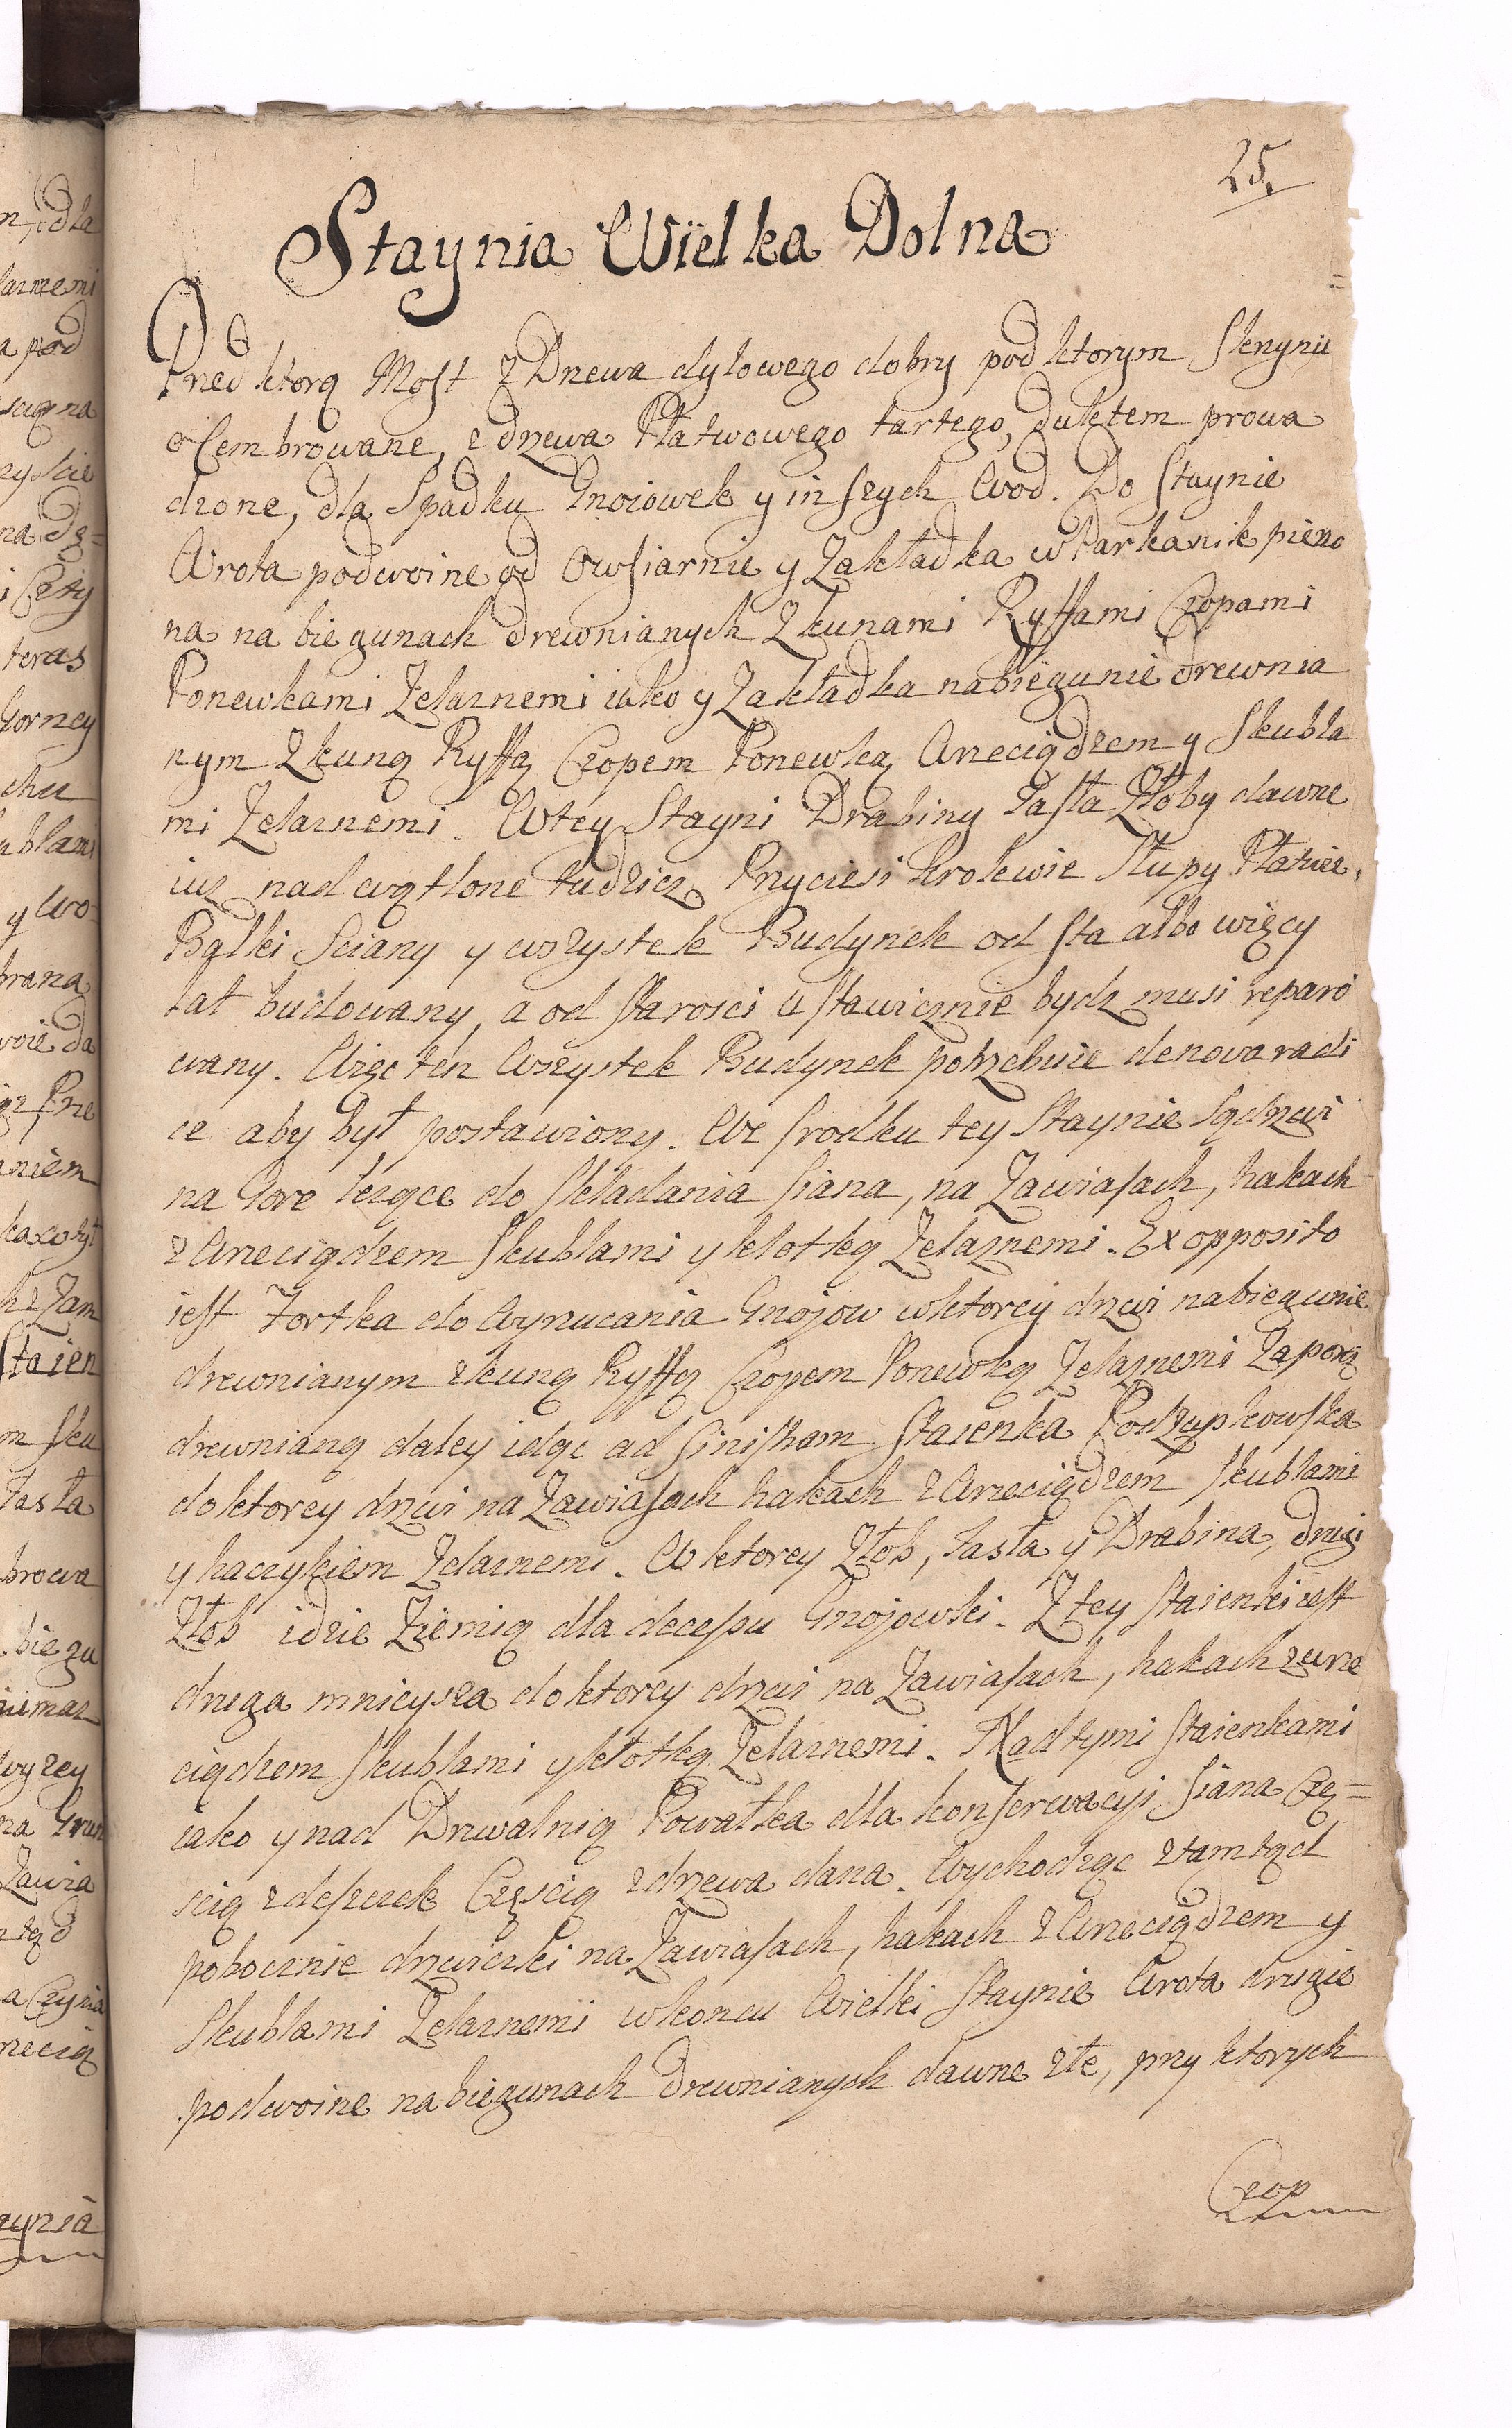 25.
Staynia Wielka Dolna
Przed ktorą Most z Drzewa dylowego dobry pod ktorym Skrynie
ocembrowane, z drzewa Płatwowego tartego, duktem prowa
dzone, dla Spadku Gnoiowek y inszych Wod. Do Staynie
Wrota podwoine od Owsiarnie y Zakładka w Parkanik pieno
na na biegunach drewnianych z kunami Ryffami Czopami
Ponewkami Zelaznemi iako y Zakładka na biegunie drewnia
nym z kuną Ryffą Czopem Ponewką Wrzeciądzem y Skubla
mi Zelaznemi. W tey Stayni Drabiny Jasła Złoby dawne
iuz nadwątlone tudziez Przyciesi krokwie Słupy Płatwie,
Bąlki Sciany y wszystek Budynek od sta albo więcy
lat budowany, a od starosci ustawicznie bydz musi reparo
wany. Więc ten Wszystek Budynek potrzebuie de nova radi
ce aby był postawiony. We srodku tey Staynie są drzwi
na Gore lezące do składania siana, na Zawiasach, hakach
z Wrzeciądzem Skublami y kłotką Zelaznemi. Ex opposito
iest Fortka do Wyrzucania Gnojow w ktorey drzwi na biegunie
drewnianym z kuną Ryffą Czopem Ponewką Zelaznemi Zaporą
drewnianą daley idąc ad sinistram Staienka Podrzupkowska
do ktorey drzwi na Zawiasach hakach z Wrzeciądzem Skublami
y haczykiem Zelaznemi. W ktorey Złob, Jasła y Drabina, drugi
Złob idzie Ziemią dla decessu Gnojowki. Z tey staienki iest
druga mnieysza do ktorey drzwi na Zawiasach, hakach z wrze
ciądzem skublami y kłotką Zelaznemi. Nad tymi staienkami
iako y nad Drwalnią Powałka dla konserwacyi siana Czę=
scią z deszczek Częscią z drzewa dana. Wychodząc z tamtąd
pobocznie drzwiczki na Zawiasach, hakach z Wrzeciądzem y
Skublami Zelaznemi w koncu Wielki Staynie Wrota drugie
podwoine na biegunach drewnianych dawne złe, przy ktorych
Czop